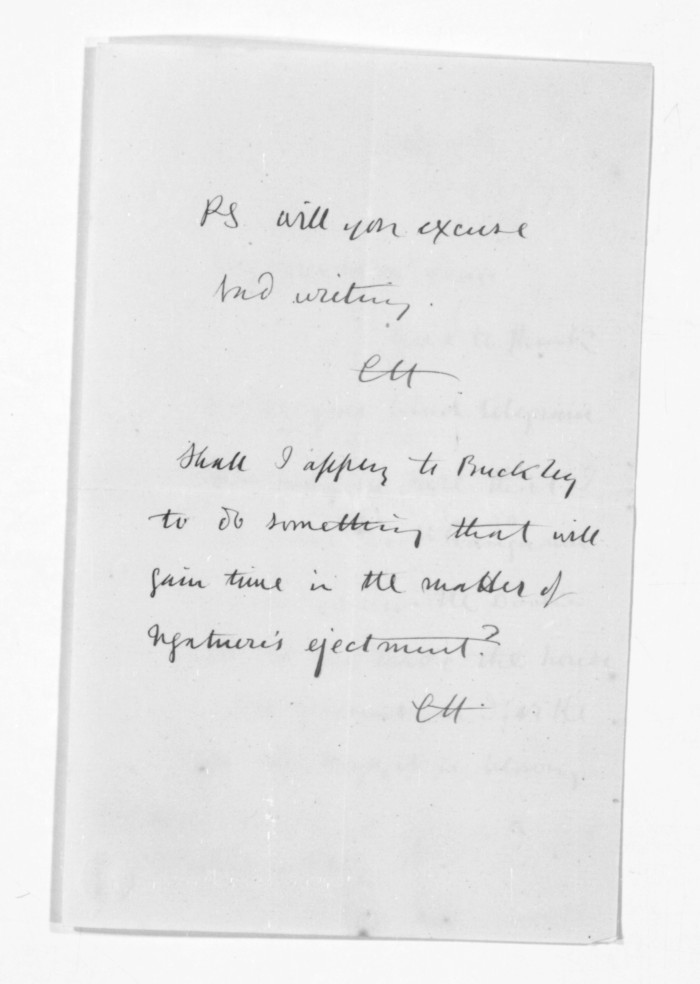 PS will you excuse
bad writing.
CH
Shall I apply to Buckley
to do something that will
gain time in the matter of
Ngatuere's ejectment?
CH